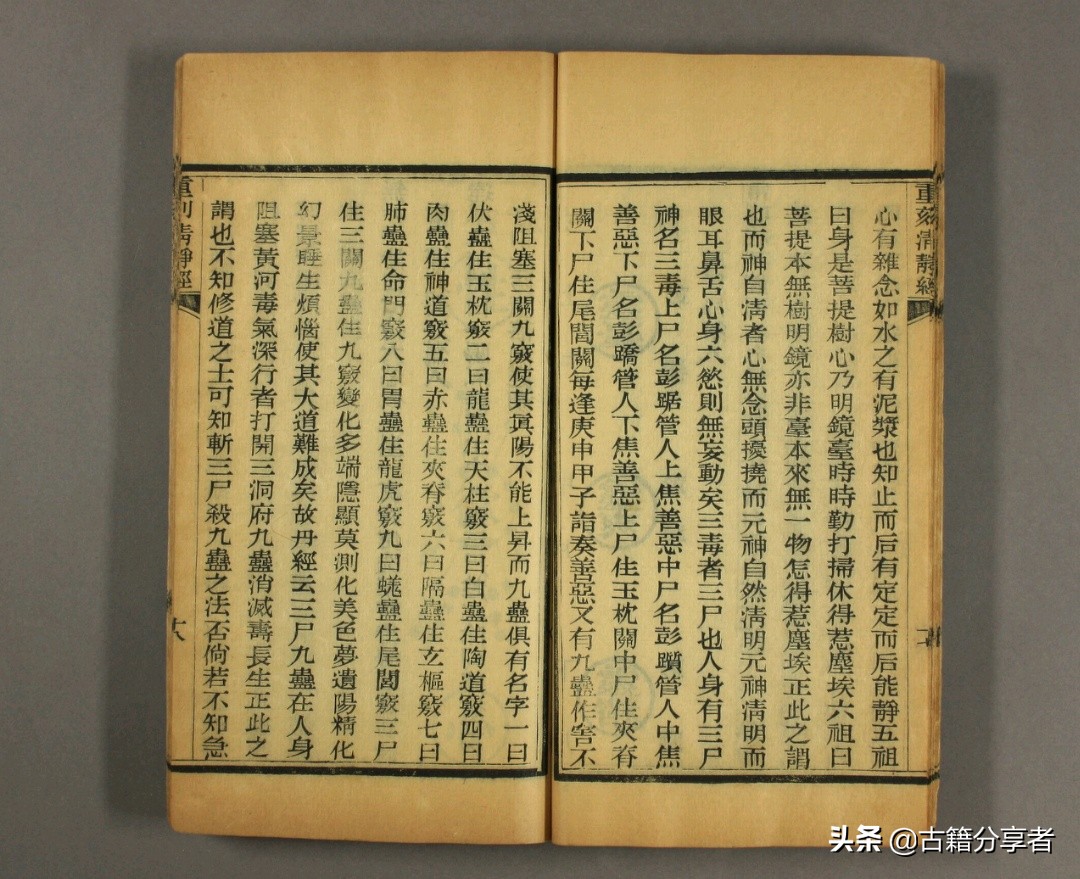 重刻清靜經
心有雜念如水之有泥漿也知止而后有定定而后能靜五祖
曰身是菩提樹心乃明鏡臺時時勤打掃休得惹塵埃六祖曰
菩提本無樹明鏡亦非臺本來無一物怎得惹塵埃正此之謂
也而神自清者心無念頭擾撓而元神自然清明元神清明而
眼耳鼻舌心身六慾則無妄動矣三毒者三尸也人身有三尸
神名三毒上尸名彭踞管人上焦善惡中尸名彭躓管人中焦
善惡下尸名彭蹻管人下焦善惡上尸住玉枕關中尸住夾脊
關下尸住尾閭關每逢庚申甲子詣奏善惡又有九蠱作害不
淺阻塞三關九竅使其眞陽不能上昇而九蠱俱有名字一曰
伏蠱住玉枕竅二曰龍蠱住天柱竅三曰白蠱住陶道竅四曰
肉蠱住神道竅五曰赤蠱住夾脊竅六曰隔蠱住玄樞竅七曰
肺蠱住命門竅八曰胃蠱住龍虎竅九曰蜣蠱住尾閭竅三尸
住三關九蠱住九竅變化多端隱顯莫測化美色夢遺陽精化
幻景睡生煩惱使其大道難成矣故丹經云三尸九蠱在人身
阻塞黃河毒氣深行者打開三洞府九蠱消滅壽長生正此之
謂也不知修道之士可知斬三尸殺九蠱之法否倘若不知急
重刻清靜經
十六
头条 @古籍分享者